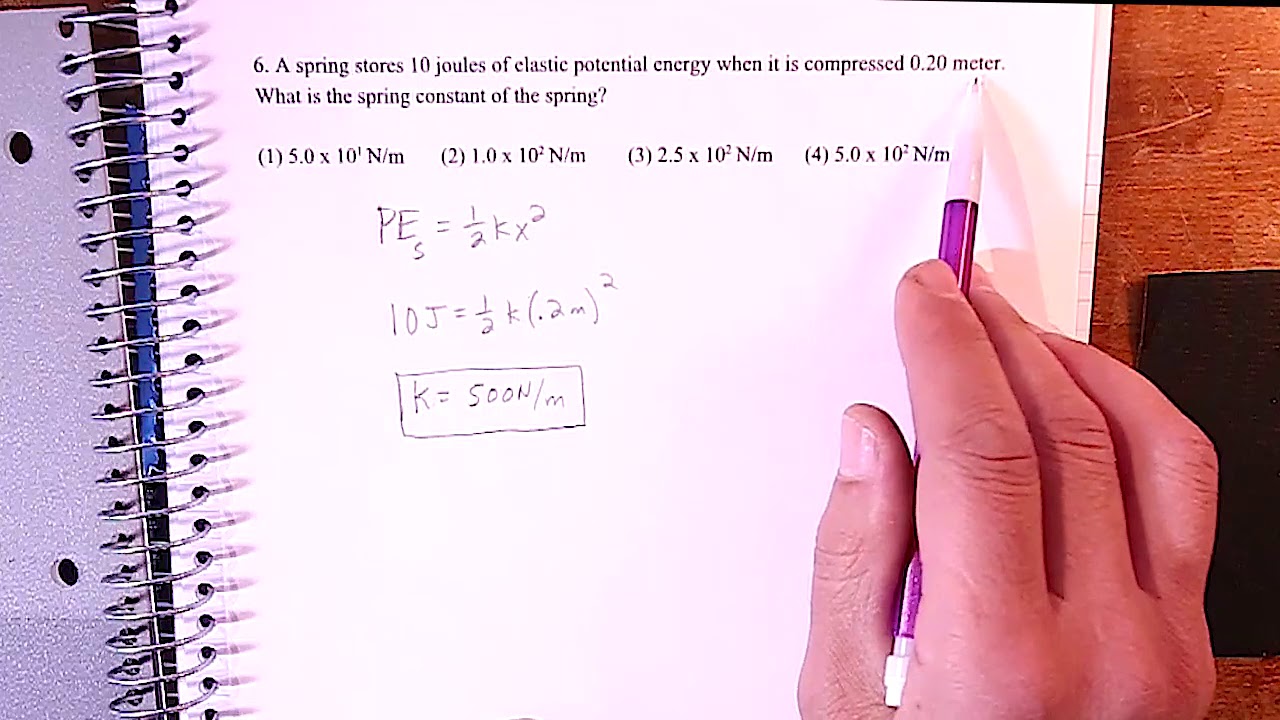 6. A spring stores 10 joules of elastic potential energy when it is compressed 0.20 meter.
What is the spring constant of the spring?
(1) 5.0 x 10¹ N/m (2) 1.0 x 10² N/m (3) 2.5 x 10² N/m (4) 5.0 x 10² N/m
PEₛ = ½kx²
10J = ½k(.2m)²
k = 500N/m